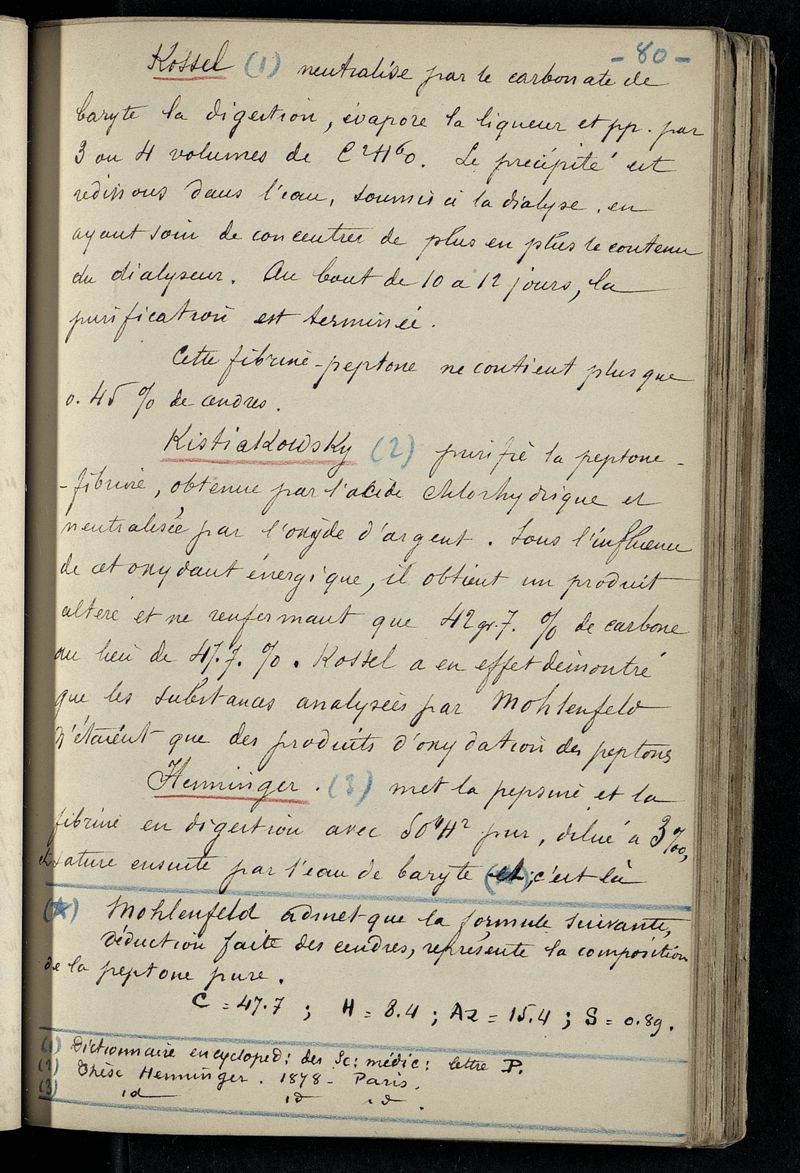 - 80 -
Kossel (1) neutralise par le carbonate de
baryte la digestion, évapore la liqueur et pp. par
3 ou 4 volumes de C²H⁶O. Le précipité est
redissous dans l'eau, soumis à la dialyse, en
ayant soin de concentrer de plus en plus le contenu
du dialyseur. Au bout de 10 à 12 jours, la
purification est terminée.
Cette fibrine-peptone ne contient plus que
0.45 % de cendres.
Kistiakowsky (2) purifie la peptone-
-fibrine, obtenue par l'acide chlorhydrique et
neutralisée par l'oxyde d'argent. Sous l'influence
de cet oxydant énergique, il obtient un produit
altéré et ne renfermant que 42gr.7. % de carbone
au lieu de 47.7. %. Kossel a en effet démontré
que les substances analysées par Mohlenfeld
n'étaient que des produits d'oxydation des peptones
Henninger. (3) met la pepsine et la
fibrine en digestion avec SO⁴H² pur, dilué à 3‰,
sature ensuite par l'eau de baryte et; c'est là
(★) Mohlenfeld admet que la formule suivante,
déduction faite des cendres, représente la composition
de la peptone pure.
C = 47.7 ; H = 8.4 ; Az = 15.4 ; S = 0.89.
(1) Dictionnaire encycloped: des Sc: médic: lettre P.
(2) Thèse Henninger. 1878 - Paris.
(3) id id id.